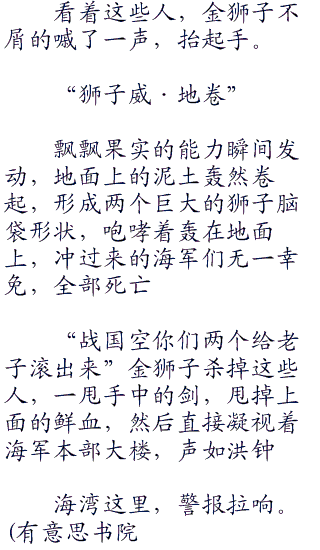 看着这些人，金狮子不
屑的嘁了一声，抬起手。
“狮子威·地卷”
飘飘果实的能力瞬间发
动，地面上的泥土轰然卷
起，形成两个巨大的狮子脑
袋形状，咆哮着轰在地面
上，冲过来的海军们无一幸
免，全部死亡
“战国空你们两个给老
子滚出来”金狮子杀掉这些
人，一甩手中的剑，甩掉上
面的鲜血，然后直接凝视着
海军本部大楼，声如洪钟
海湾这里，警报拉响。
(有意思书院